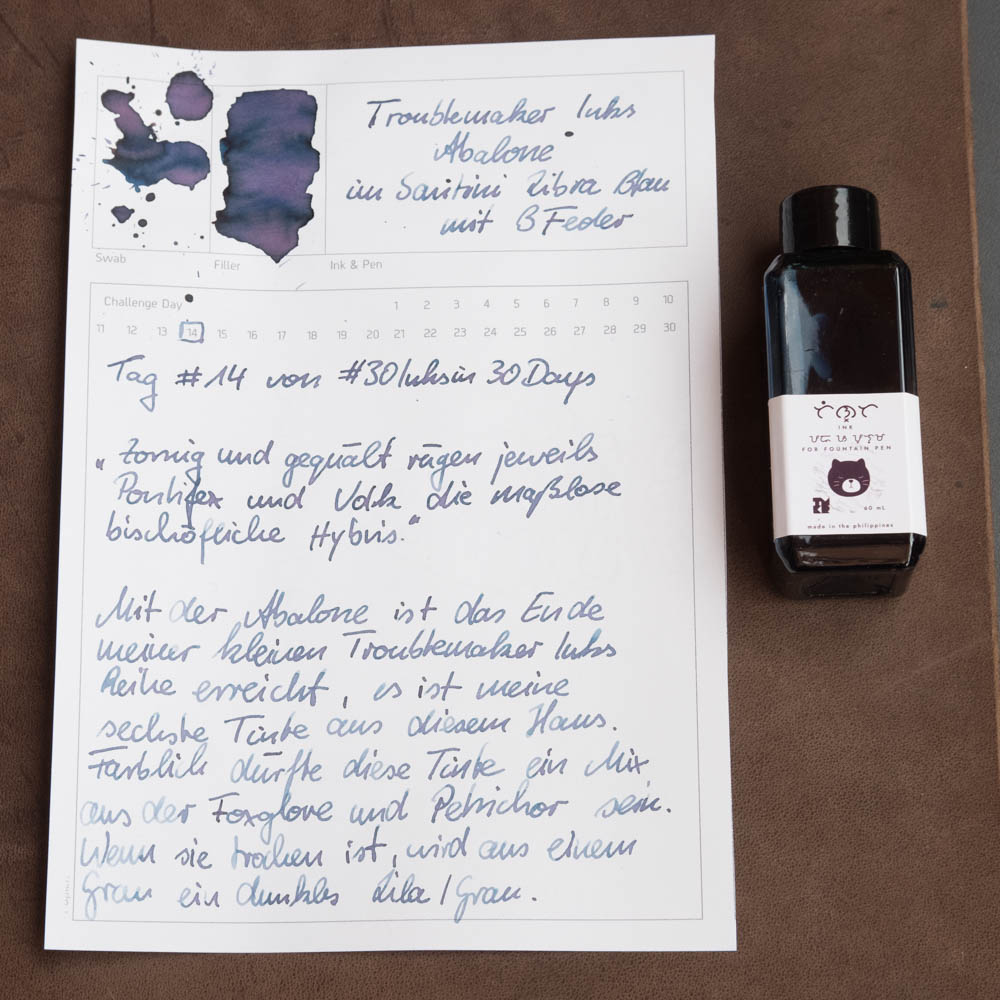 Troublemaker Inks
Abalone
im Santini Libra Blau
mit B Feder
Swab
Filler
Ink & Pen
Challenge Day
1 2 3 4 5 6 7 8 9 10
11 12 13 14 15 16 17 18 19 20 21 22 23 24 25 26 27 28 29 30
Tag #14 von #30Inksin30Days
„Zornig und gequält rügen jeweils
Pontifex und Volk die maßlose
bischöfliche Hybris.“
Mit der Abalone ist das Ende
meiner kleinen Troublemaker Inks
Reihe erreicht, es ist meine
sechste Tinte aus diesem Haus.
Farblich dürfte diese Tinte ein Mix
aus der Foxglove und Petrichor sein.
Wenn sie trocken ist, wird aus einem
Grau ein dunkles Lila / Grau.
INK
FOR FOUNTAIN PEN
60 mL
made in the philippines